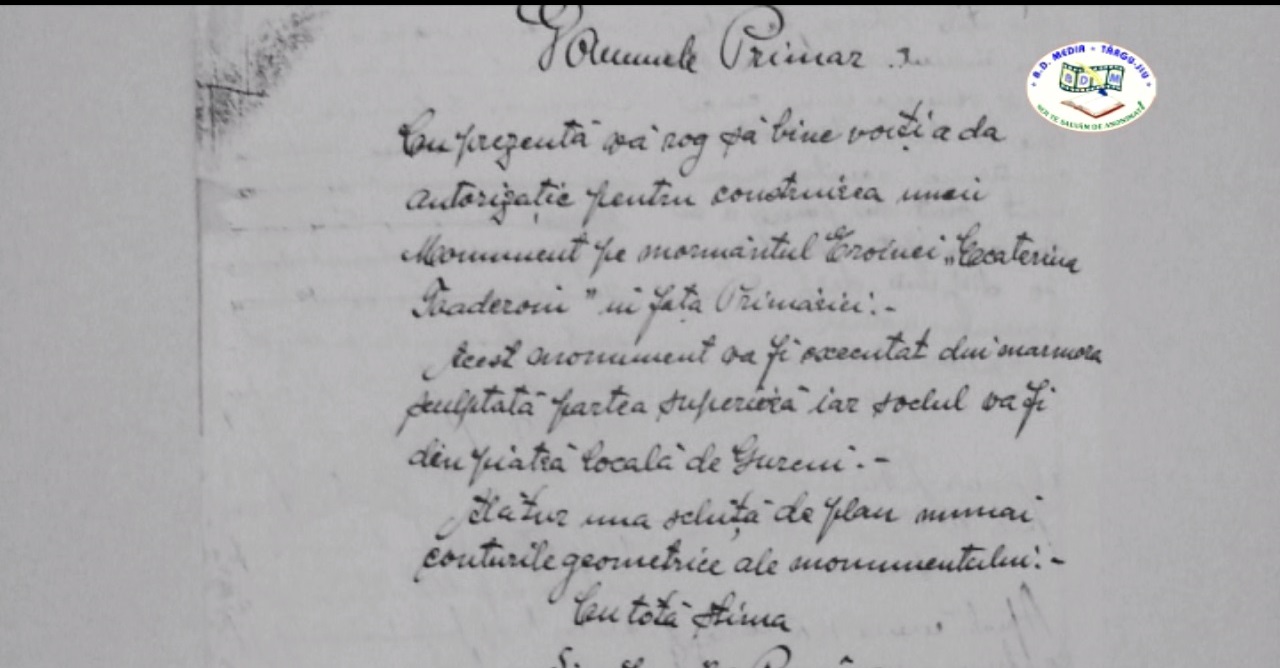 Domnule Primar
Cu prezentă vă rog să bine voiți a da
autorizație pentru construirea unui
Monument pe mormântul Eroinei „Ecaterina
Teoderoiu" în fața Primăriei:-
Acest monument va fi executat din marmora
sculptată partea superioră iar soclul va fi
din piatră locală de Gureni.-
Alătur una schiță de plan numai
conturile geometrice ale monumentului:-
Cu totă stima
B.D. MEDIA - TÂRGU-JIU
B D M
NOI TE SALVĂM DE ANONIMAT!